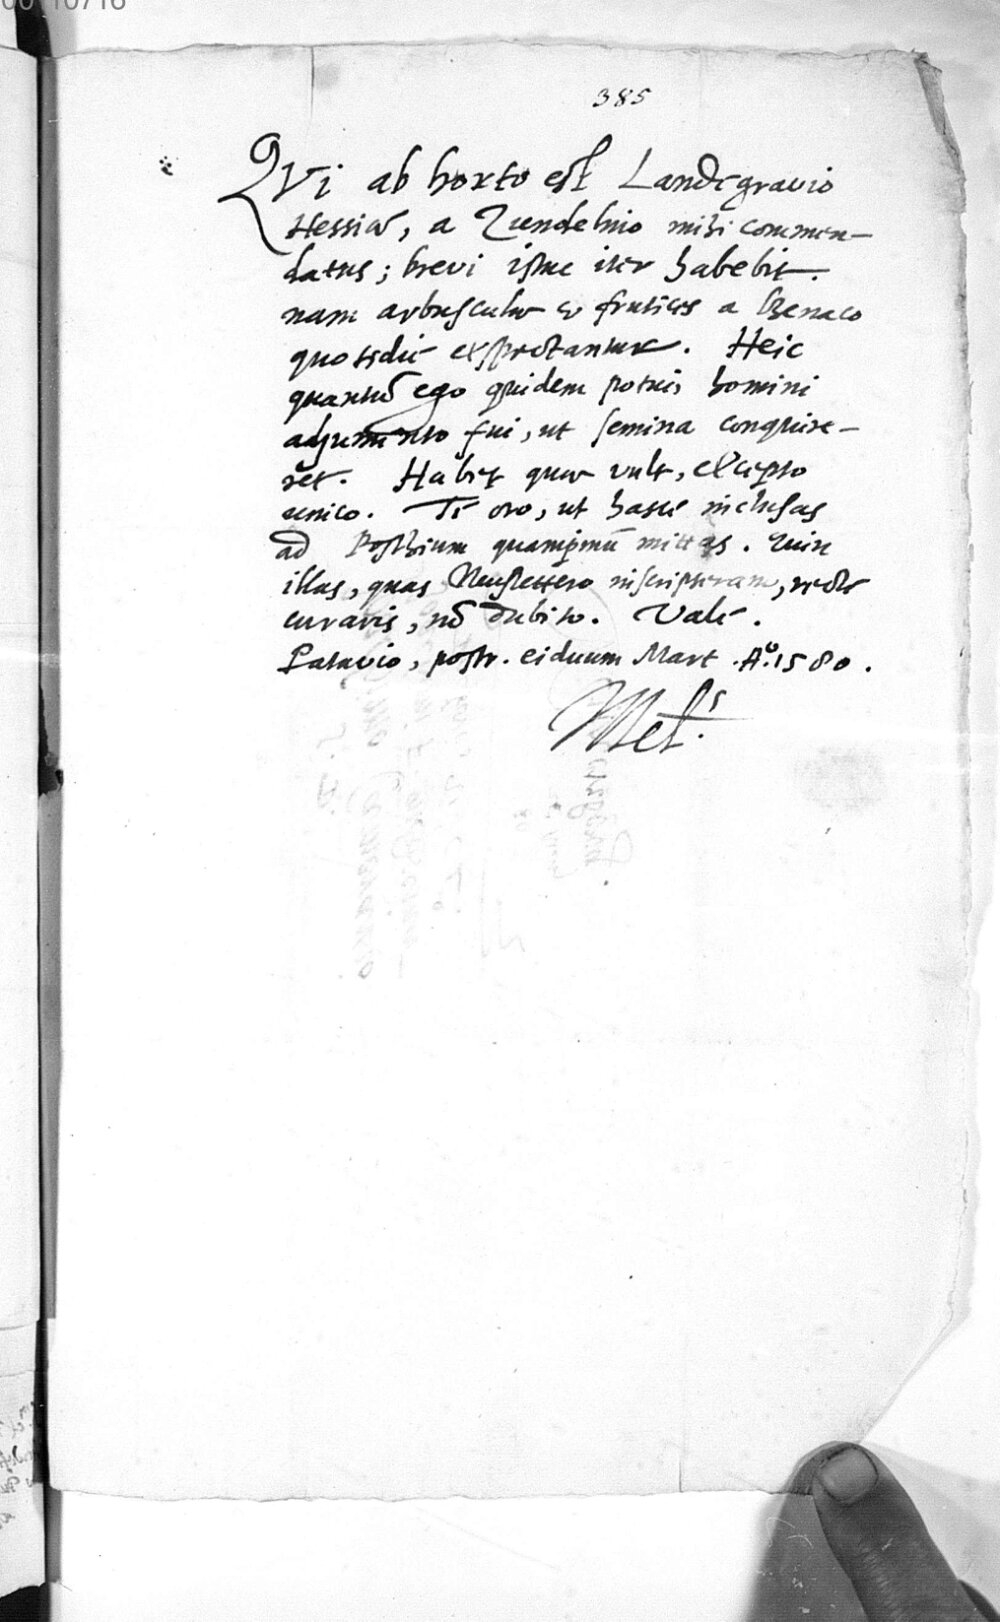 385
QVi ab horto est Landtgravio
Hessiae, a Zundelino mihi commen-
datus; brevi istuc iter habebit.
nam arbusculae & frutices a Benaco
quotidie exspectantur. Heic
quantū ego quidem potui homini
adjumento fui, ut semina conquire-
ret. Habet quae vult, excepto
unico. Te oro, ut hasce inclusas
ad Posthium quamprimū mittas. Quin
illas, quas Neustettero inscripseram, recte
curaris, nō dubito. Vale.
Patavio, postr. eiduum Mart. Aº. 1580.
Mel.s